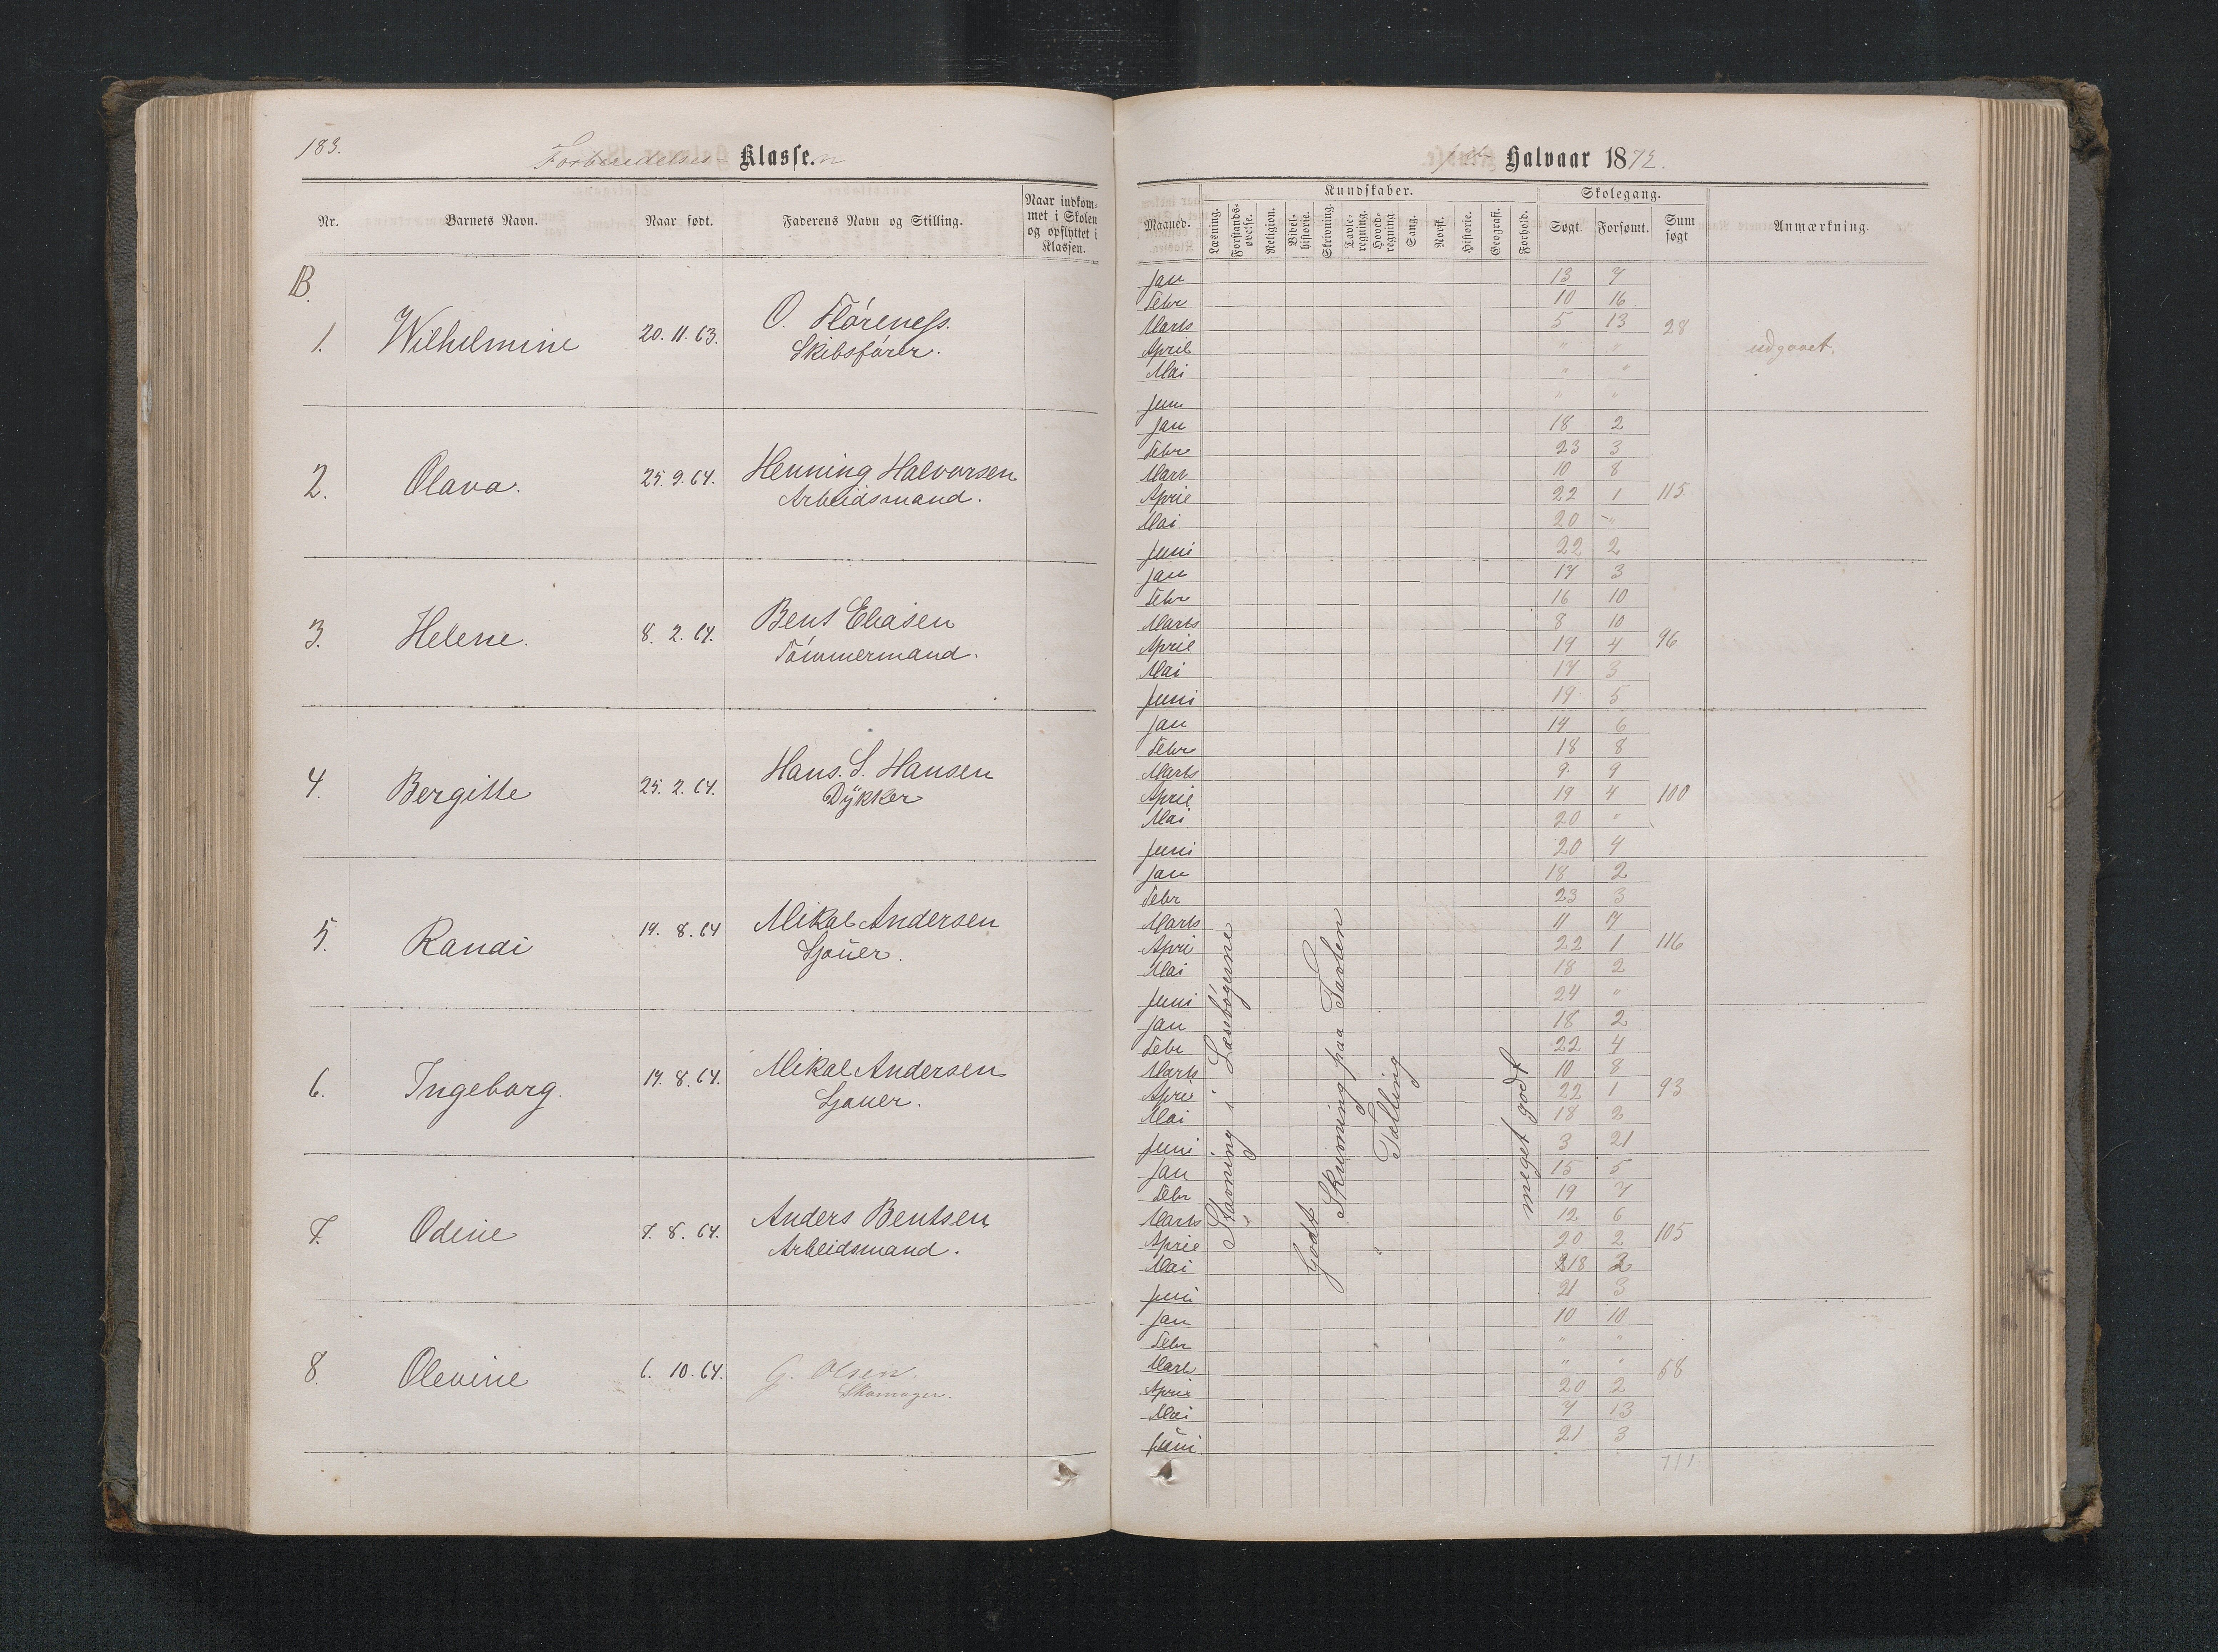 183.
Forberedelses- Klasse.n
Nr.
Barnets Navn.
Naar født.
Faderens Navn og Stilling.
Naar indkom-
met i Skolen
og opflyttet i
Klassen.
B.
1.
Wilhelmine
20. 11. 63.
O. Flóreness.
Skibsfører.
2.
Olava.
25. 9. 64.
Henning Halvorsen
Arbeidsmand.
3.
Helene.
8. 2. 64.
Bent Eliasen
Tómmermand.
4.
Bergitte
25. 2. 64.
Hans. S. Hansen
Dÿkker
5.
Randi
19. 8. 64
Mikal Andersen
Sjouer.
6.
Ingeborg.
19. 8. 64.
Mikal Andersen
Sjouer.
7.
Odine
7. 8. 64.
Anders Bentsen
Arbeidsmand.
8.
Olevine
6. 10. 64.
G. Olsen.
Skomager.
Halvaar 1872.
Maaned.
Kundskaber.
Læsning.
Forstands-
øvelse.
Religion.
Bibel-
historie.
Skrivning.
Tavle-
regning.
Hoved-
regning.
Sang.
Norsk.
Historie.
Geografi.
Forhold.
Skolegang.
Søgt.
Forsømt.
Sum
søgt
Anmærkning.
Jan 13 7
Febr 10 16
Marts 5 13 28
April " " udgaaet.
Mai " "
Juni " "
Jan 18 2
Febr 23 3
Mart 10 8
April 22 1 115
Mai 20 "
Juni 22 2
Jan 17 3
Febr 16 10
Marts 8 10
April 19 4 96
Mai 17 3
Juni 19 5
Jan 14 6
Febr 18 8
Marts 9 9
April 19 4 100
Mai 20 "
Juni 20 4
Jan 18 2
Febr 23 3
Marts 11 7
April 22 1 116
Mai 18 2
Juni 24 "
Jan 18 2
Febr 22 4
Marts 10 8
April 22 1 93
Mai 18 2
Juni 3 21
Jan 15 5
Febr 19 7
Marts 12 6
April 20 2 105
Mai 18 2
Juni 21 3
Jan 10 10
Febr " "
Mart " " 58
April 20 2
Mai 7 13
Juni 21 3
711
Stavning i Læsebógerne
Godt
Skrivning paa Tavlen
Tælling
meget godt